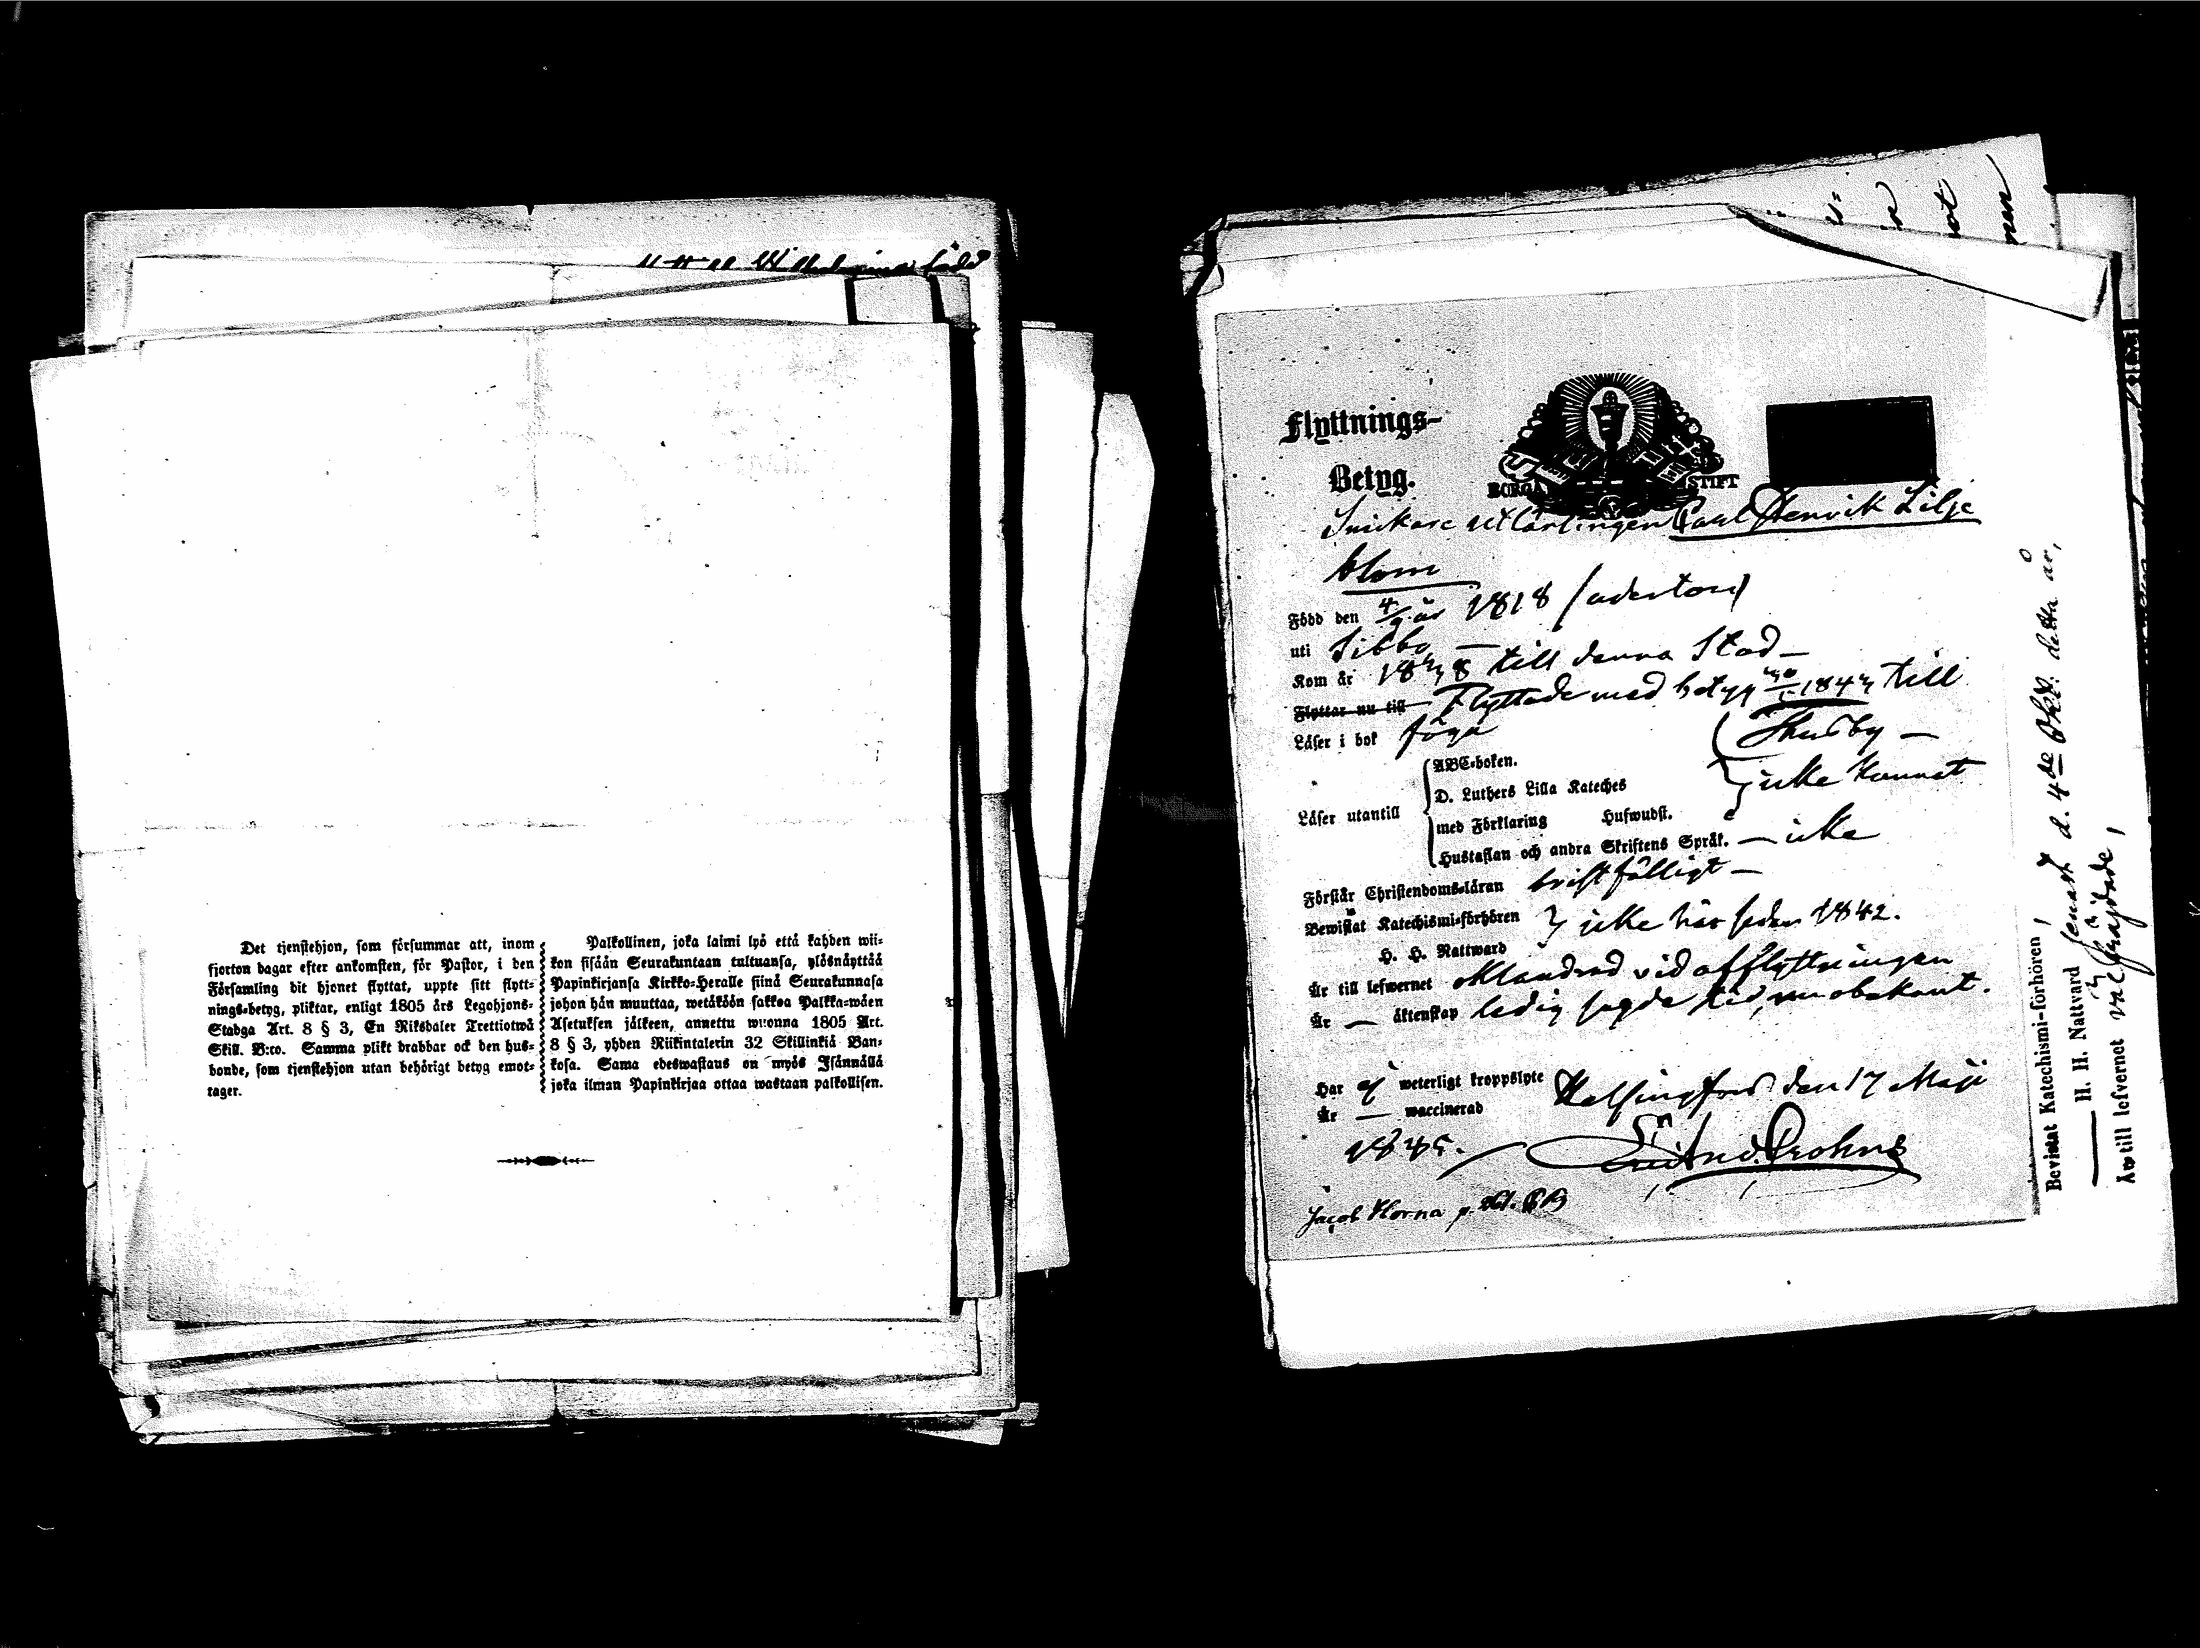 Det tjenstehjon, som försummar att, inom
fjorton dagar efter ankomsten, för Pastor, i den
Församling dit hjonet flyttat, uppte sitt flytt-
nings-betyg, pliktar, enligt 1805 års Legohjons-
Stadga Art. 8 § 3, En Riksdaler Trettiotwå
Skill. B:co. Samma plikt drabbar ock den hus-
bonde, som tjenstehjon utan behörigt betyg emot-
tager.
Palkollinen, joka laimi lyö että kahden wii-
kon sisään Seurakuntaan tultuansa, ylösnäyttää
Papinkirjansa Kirkko-Heralle siinä Seurakunnasa
johon hän muuttaa, wetäköön sakkoa Palkka-wäen
Asetuksen jälkeen, annettu wuonna 1805 Art.
8 § 3, yhden Riikintalerin 32 Skillinkiä Ban-
kosa. Sama edeswastaus on myös Isännällä
joka ilman Papinkirjaa ottaa wastaan palkollisen.
Flyttnings-
Betyg.
BORGÅ STIFT
Carl Henrik Lilje
blom
Född den 4/9 år 1818 (aderton)
uti Sibbo —
Kom år 1838 till denna Stad —
Flyttar nu till Flyttade med betyg 1843 till
Läser i bok föga Thusby —
ABC-boken.
D. Luthers Lilla Kateches icke kunnat
Läser utantill
med Förklaring Hufwudst.
Hustaflan och andra Skriftens Språk. — icke
Förstår Christendoms-läran bristfälligt —
Bewistat Katechismi-förhören } icke här sedan 1842.
H. H. Nattward
Är till lefwernet oklandrad vid afflyttningen
Är — äktenskap ledig sagde tid, nu obekant.
Har ej weterligt kroppslyte Helsingfors den 17 Maji
Är — waccinerad
1845.
Jacob Horna
Bevistat Katechismi-förhören }
H. H. Nattvard senast d. 4de Okt. detta år,
Är till lefvernet väl frägdade,